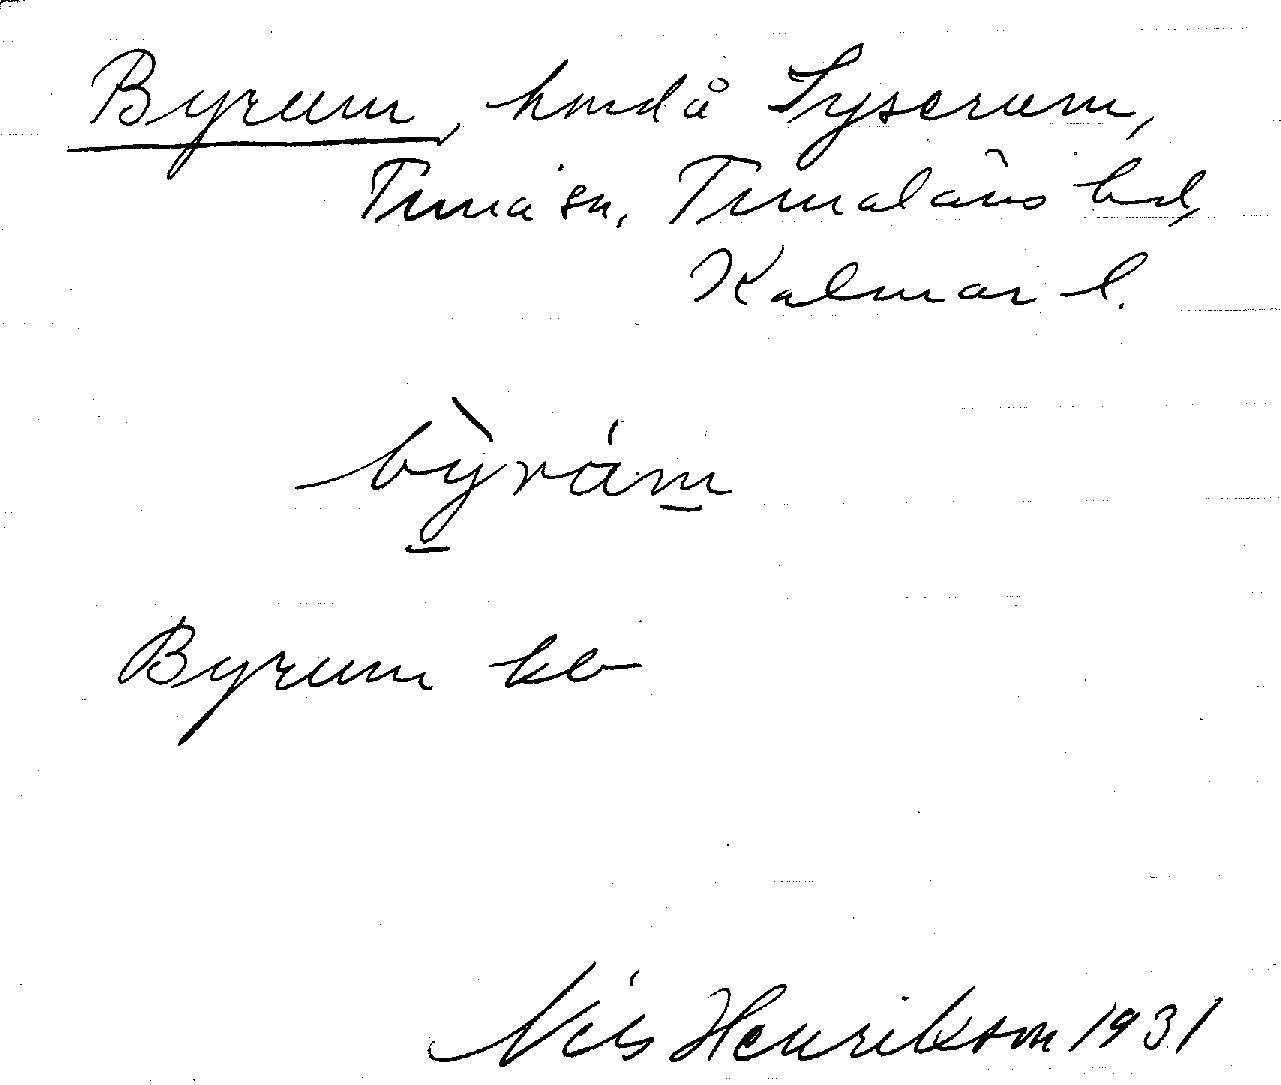 Byrum, hmdå Lyserum,
Tuna sn, Tunaläns hd,
Kalmar l.
bỳrám
Byrum kb
Nils Henrikson 1931